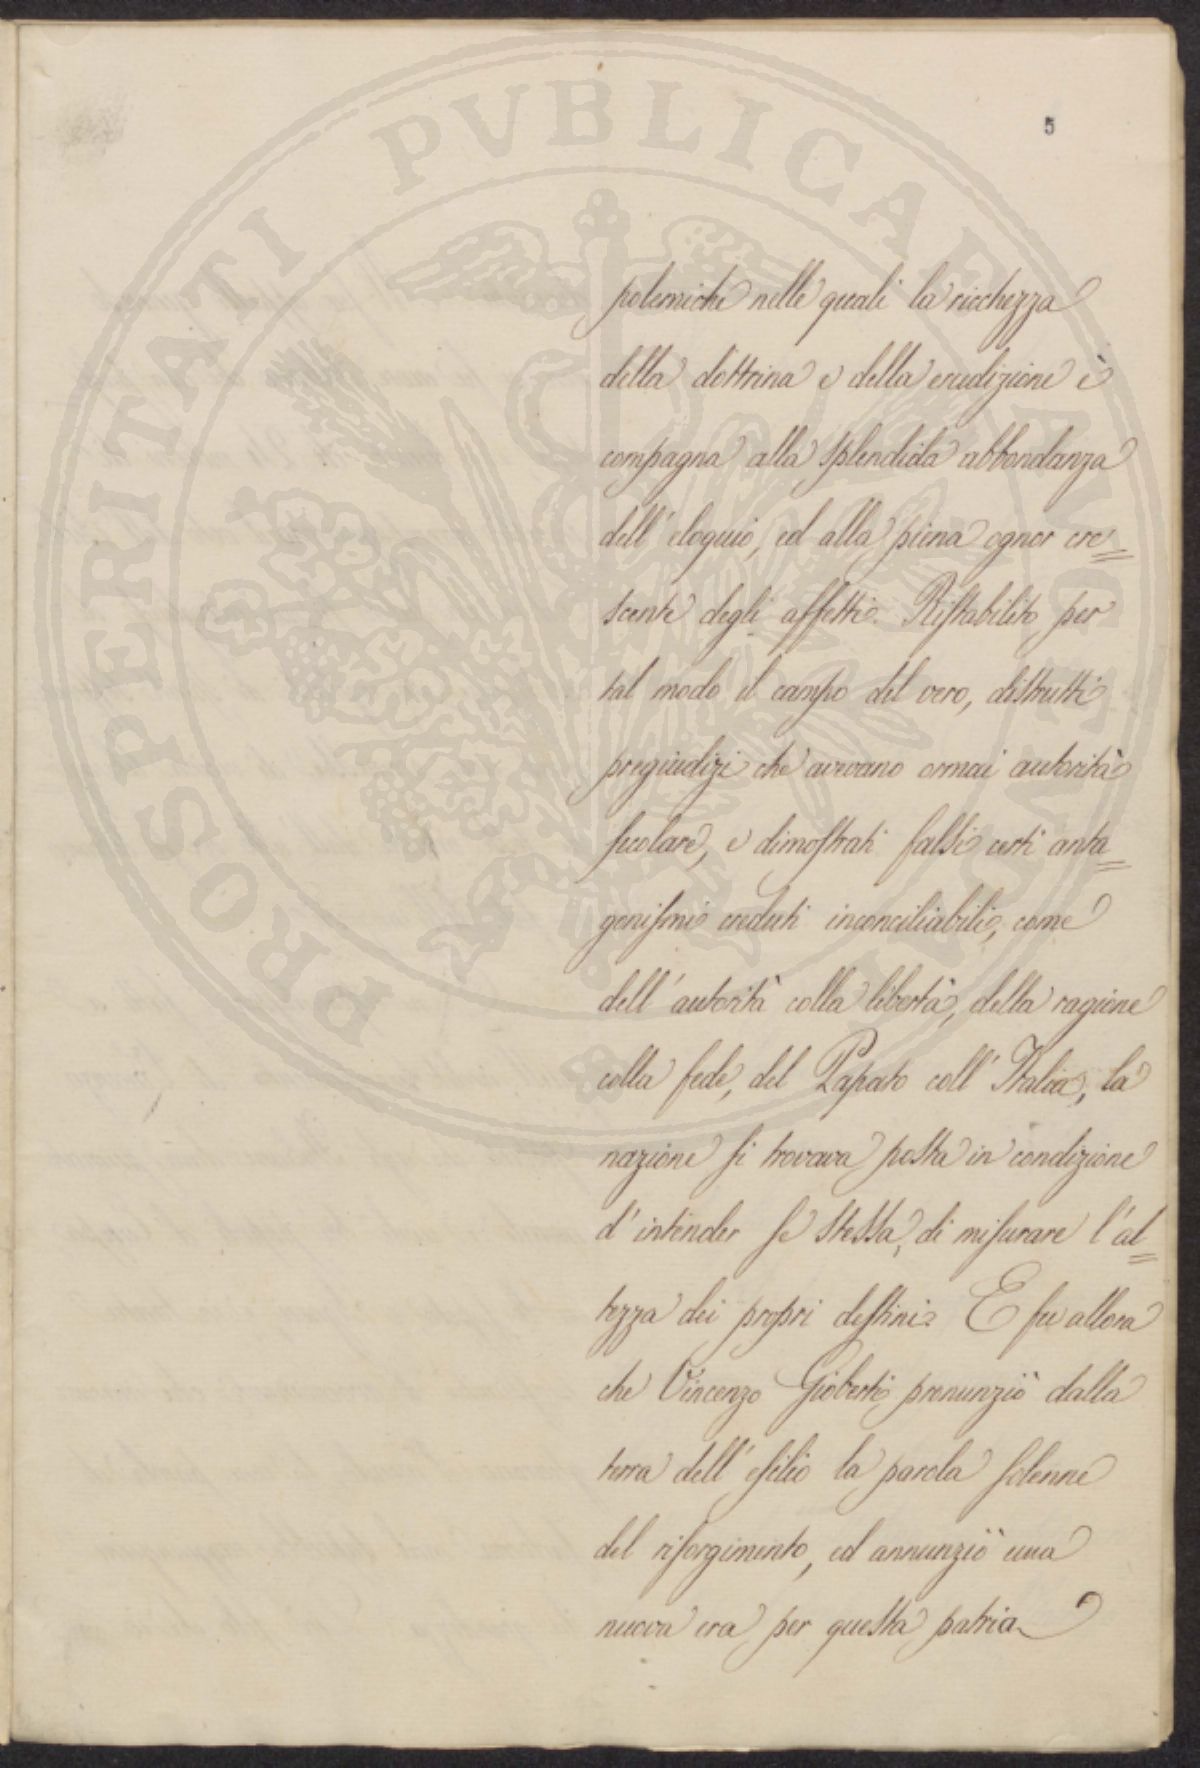 5
polemiche nelle quali la ricchezza
della dottrina e della erudizione è
compagna alla splendida abbondanza
dell'eloquio, ed alla piena ognor cre=
scente degli affetti. Ristabilito per
tal modo il campo del vero, distrutti
pregiudizi che avevano ormai autorità
secolare, e dimostrati falsi certi anta=
gonismi creduti inconciliabili, come
dell'autorità colla libertà, della ragione
colla fede, del Papato coll'Italia, la
nazione si trovava posta in condizione
d'intender se stessa, di misurare l'al=
tezza dei propri destini. E fu allora
che Vincenzo Gioberti pronunziò dalla
terra dell'esilio la parola solenne
del risorgimento, ed annunziò una
nuova era per questa patria
PROSPERITATI PVBLICAE AVGENDAE